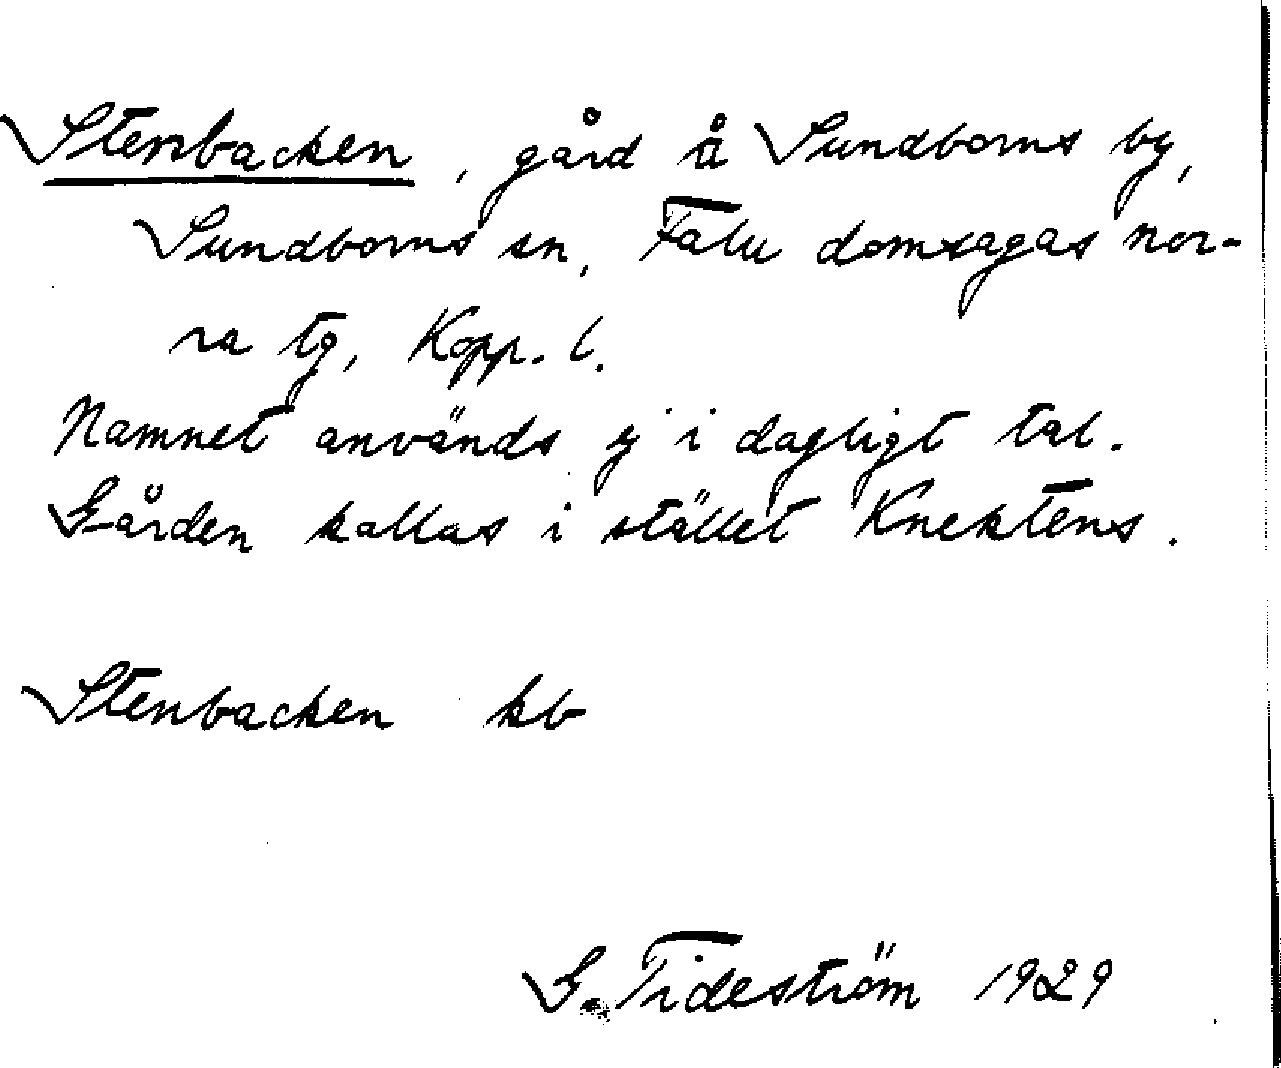 Stenbacken, gård å Sundborns by,
Sundborns sn, Falu domsagas nor-
ra tg, Kopp. l.
Namnet används ej i dagligt tal.
Gården kallas i stället Knektens.
Stenbacken kb
G. Tideström 1929